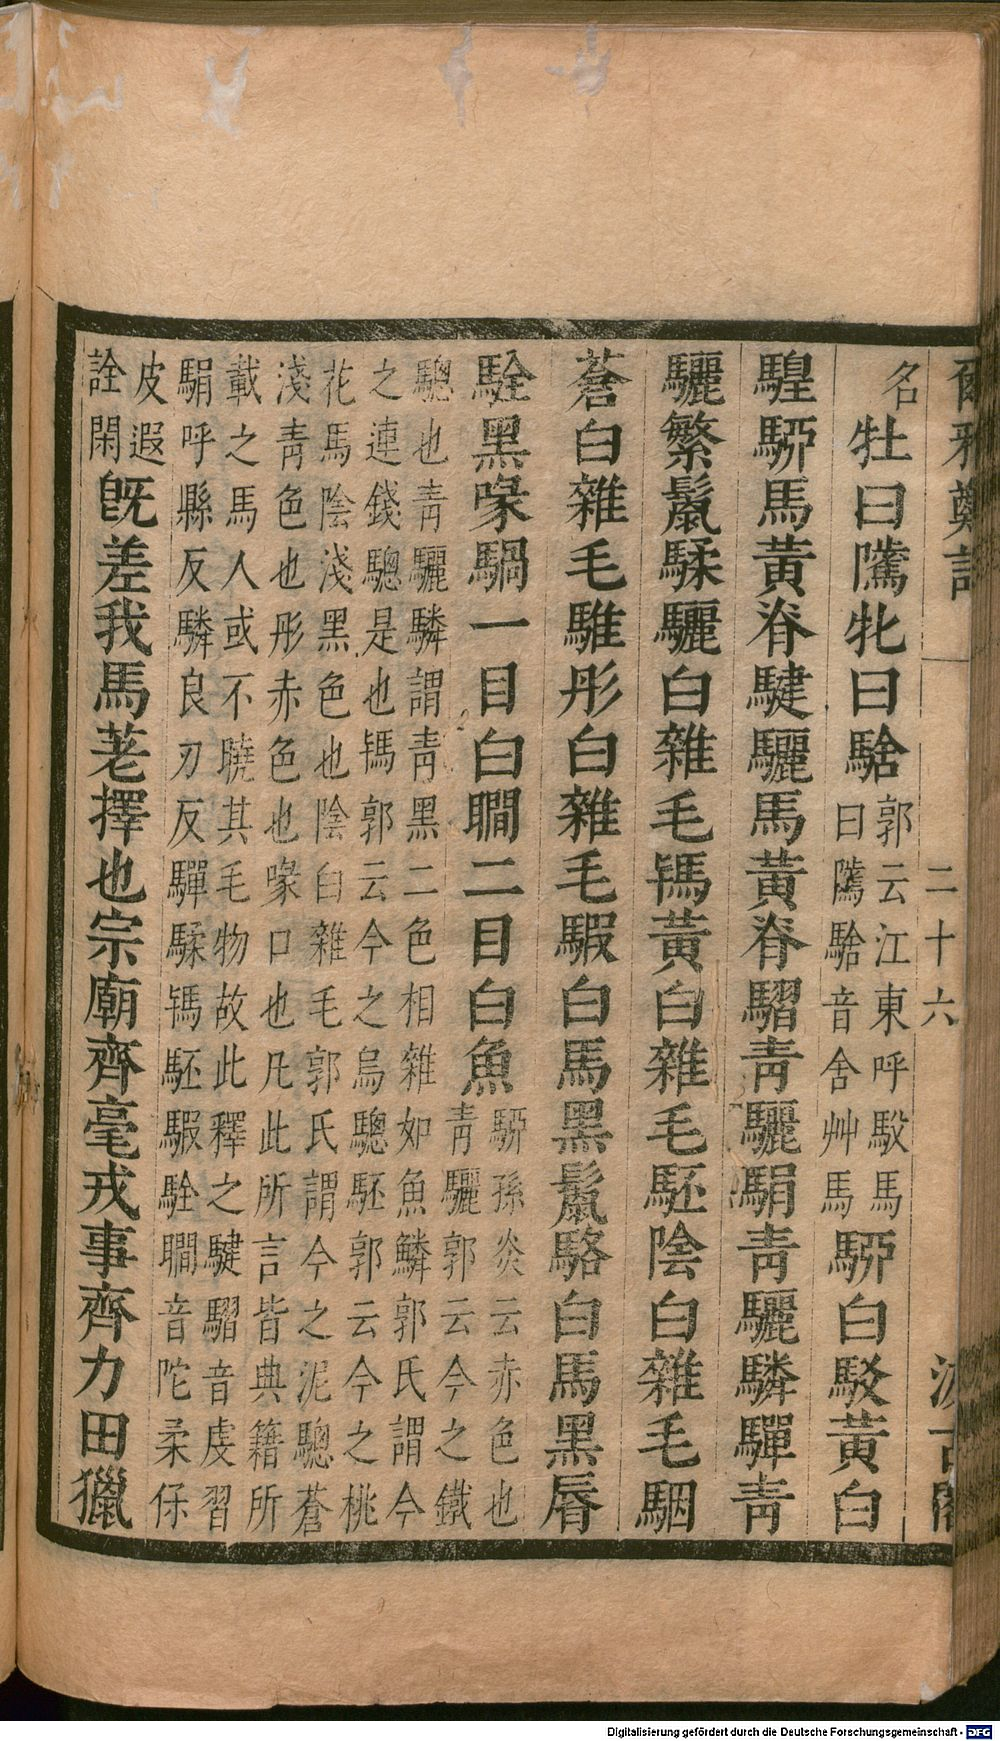 爾雅鄭註 二十六 汲古閣
名
牡曰隲牝曰騇
郭云江東呼駁馬
曰隲騇音舍艸馬
駵白駁黃白
騜駵馬黃脊騝驪馬黃脊騽青驪駽青驪驎驒青
驪繁鬣騥驪白雜毛駂黃白雜毛駓陰白雜毛駰
蒼白雜毛騅彤白雜毛騢白馬黑鬣駱白馬黑脣
駩黑喙騧一目白瞯二目白魚
駵孫炎云赤色也
青驪郭云今之鐵
驄也青驪驎謂青黑二色相雜如魚鱗郭氏謂今
之連錢驄是也駂郭云今之烏驄駓郭云今之桃
花馬陰淺黑色也陰白雜毛郭氏謂今之泥驄蒼
淺青色也彤赤色也喙口也凡此所言皆典籍所
載之馬人或不曉其毛物故此釋之騝騽音虔習
駽呼縣反驎良刃反驒騥駂駓騢駩瞯音陀柔保
皮遐
詮閑
既差我馬差擇也宗廟齊毫戎事齊力田獵
Digitalisierung gefördert durch die Deutsche Forschungsgemeinschaft - DFG